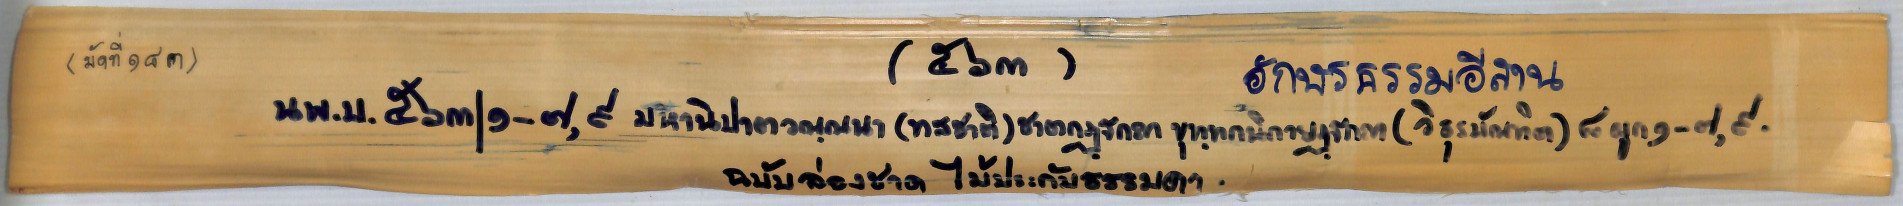 (มัดที่ ๑๔๓)
(๕๖๓)
อักษรธรรมอีสาน
นพ.บ. ๕๖๓/๑-๗,๙ มหานิปาตวณฺณนา (ทสชาติ) ชาตกฏฺฐกถา ขุทฺทกนิกายฏฺฐกถา (วิธุรบัณฑิต) ๘ ผูก ๑-๗,๙.
ฉบับล่องชาด ไม้ประกับธรรมดา.